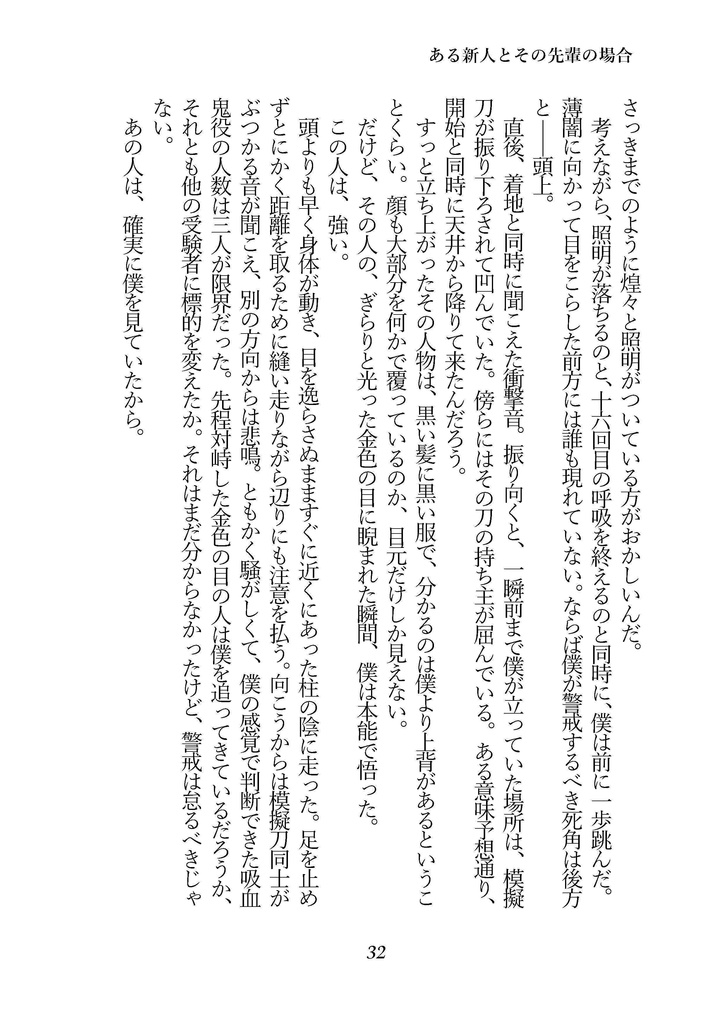 ある新人とその先輩の場合
さっきまでのように煌々と照明がついている方がおかしいんだ。
考えながら、照明が落ちるのと、十六回目の呼吸を終えるのと同時に、僕は前に一歩跳んだ。
薄闇に向かって目をこらした前方には誰も現れていない。ならば僕が警戒するべき死角は後方
と――頭上。
直後、着地と同時に聞こえた衝撃音。振り向くと、一瞬前まで僕が立っていた場所は、模擬
刀が振り下ろされて凹んでいた。傍らにはその刀の持ち主が屈んでいる。ある意味予想通り、
開始と同時に天井から降りて来たんだろう。
すっと立ち上がったその人物は、黒い髪に黒い服で、分かるのは僕より上背があるというこ
とくらい。顔も大部分を何かで覆っているのか、目元だけしか見えない。
だけど、その人の、ぎらりと光った金色の目に睨まれた瞬間、僕は本能で悟った。
この人は、強い。
頭よりも早く身体が動き、目を逸らさぬまますぐに近くにあった柱の陰に走った。足を止め
ずとにかく距離を取るために縫い走りながら辺りにも注意を払う。向こうからは模擬刀同士が
ぶつかる音が聞こえ、別の方向からは悲鳴。ともかく騒がしくて、僕の感覚で判断できた吸血
鬼役の人数は三人が限界だった。先程対峙した金色の目の人は僕を追ってきているだろうか、
それとも他の受験者に標的を変えたか。それはまだ分からなかったけど、警戒は怠るべきじゃ
ない。
あの人は、確実に僕を見ていたから。
32